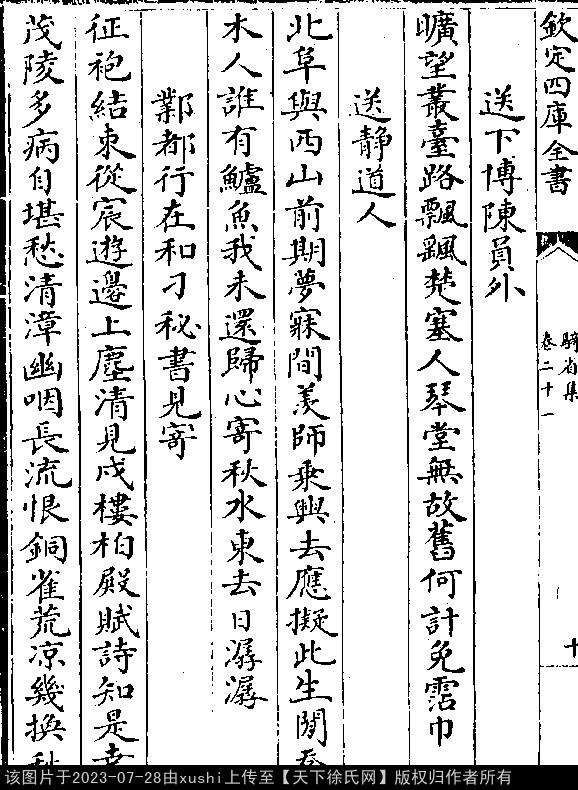 欽定四庫全書
騎省集
卷二十一
十
送下博陳員外
曠望叢臺路飄飄楚塞人琴堂無故舊何計免霑巾
送静道人
北阜與西山前期夢寐間羨師乗興去應擬此生閒
木人誰有鱸魚我未還歸心寄秋水東去日潺潺
鄴都行在和刁秘書見寄
征袍結束從宸遊邊上塵清見戍樓柏殿賦詩知是
茂陵多病自堪愁清漳幽咽長流恨銅雀荒凉幾換
该图片于2023-07-28由xushi上传至【天下徐氏网】版权归作者所有